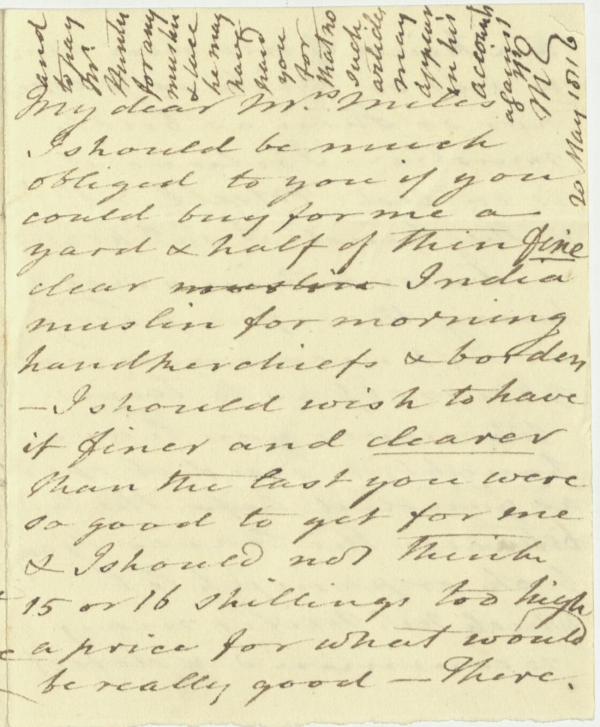 My dear Mrs. Miles
I should be much
obliged to you if you
could buy for me a
yard & half of thin fine
clear muslin India
muslin for morning
handkerchiefs & border
– I should wish to have
it finer and clearer
than the last you were
so good to get for me
& I should not think
15 or 16 shillings too high
a price for what would
be really good – There
and
to pay
Mr.
Hunter
for any
muslin
& lace
he may
have
had
you
for
that no
such
articles
may
appear
in his
account
against
20 May 1816